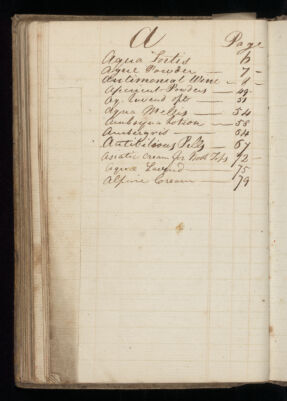 A Page
Aqua Fortis 6
Ague Powder — 7 -
Antimonial Wine - 11 -
Aperient Powders — 49 -
Aq. Lavend — 51
Aqua Mellis — 54
— 55
Ambergris — 54
Antibilious Pills 67
Asiatic Cream for 72 -
Aqua Lavend — 75
Alpine Cream 79